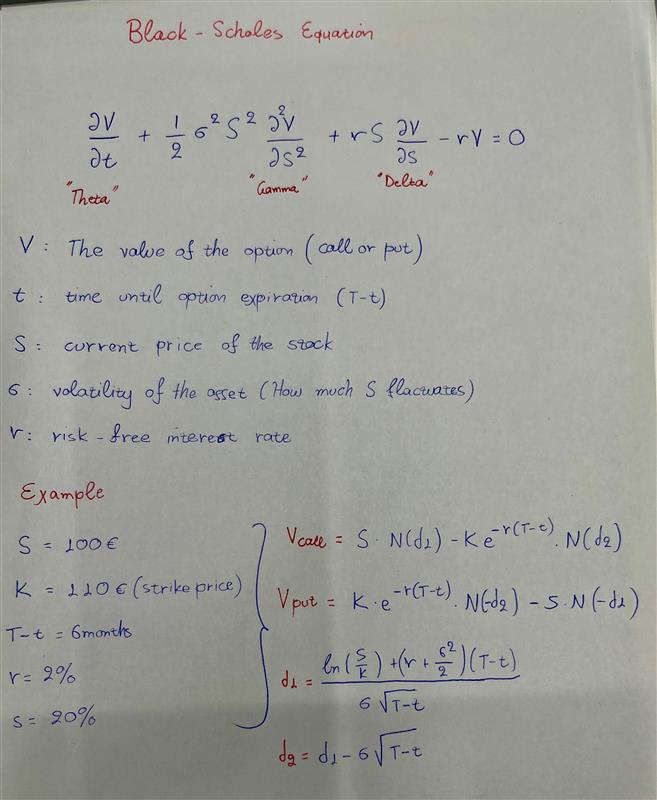 Black - Scholes Equation
∂V/∂t + 1/2 σ² S² ∂²V/∂s² + rS ∂V/∂s - rV = 0
"Theta" "Gamma" "Delta"
V : The value of the option (call or put)
t : time until option expiration (T-t)
S : current price of the stock
σ : volatility of the asset (How much S flacuates)
r : risk-free interest rate
Example
S = 100€
K = 110€ (strike price)
T-t = 6months
r = 2%
s = 20%
Vcall = S · N(d1) - K e^-r(T-t) · N(d2)
Vput = K · e^-r(T-t) · N(-d2) - S · N(-d1)
d1 = (ln(S/K) + (r + σ²/2)(T-t)) / (σ √(T-t))
d2 = d1 - σ √(T-t)